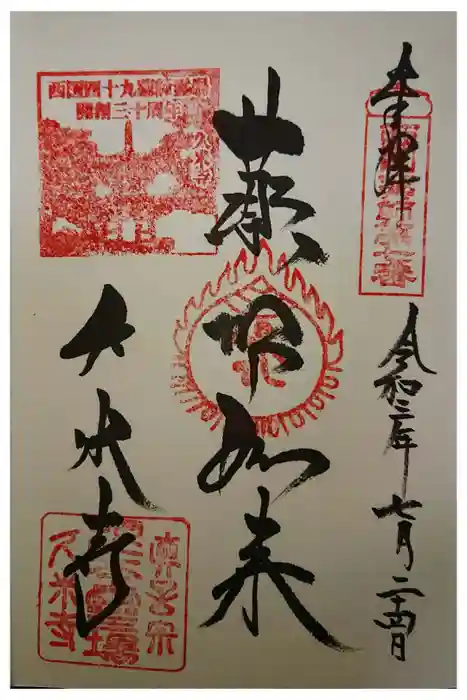 奉拝
令和三年七月二十四日
薬師如来
久米寺
西国四十九薬師霊場
開創三十周年
久米寺
真言宗
久米寺